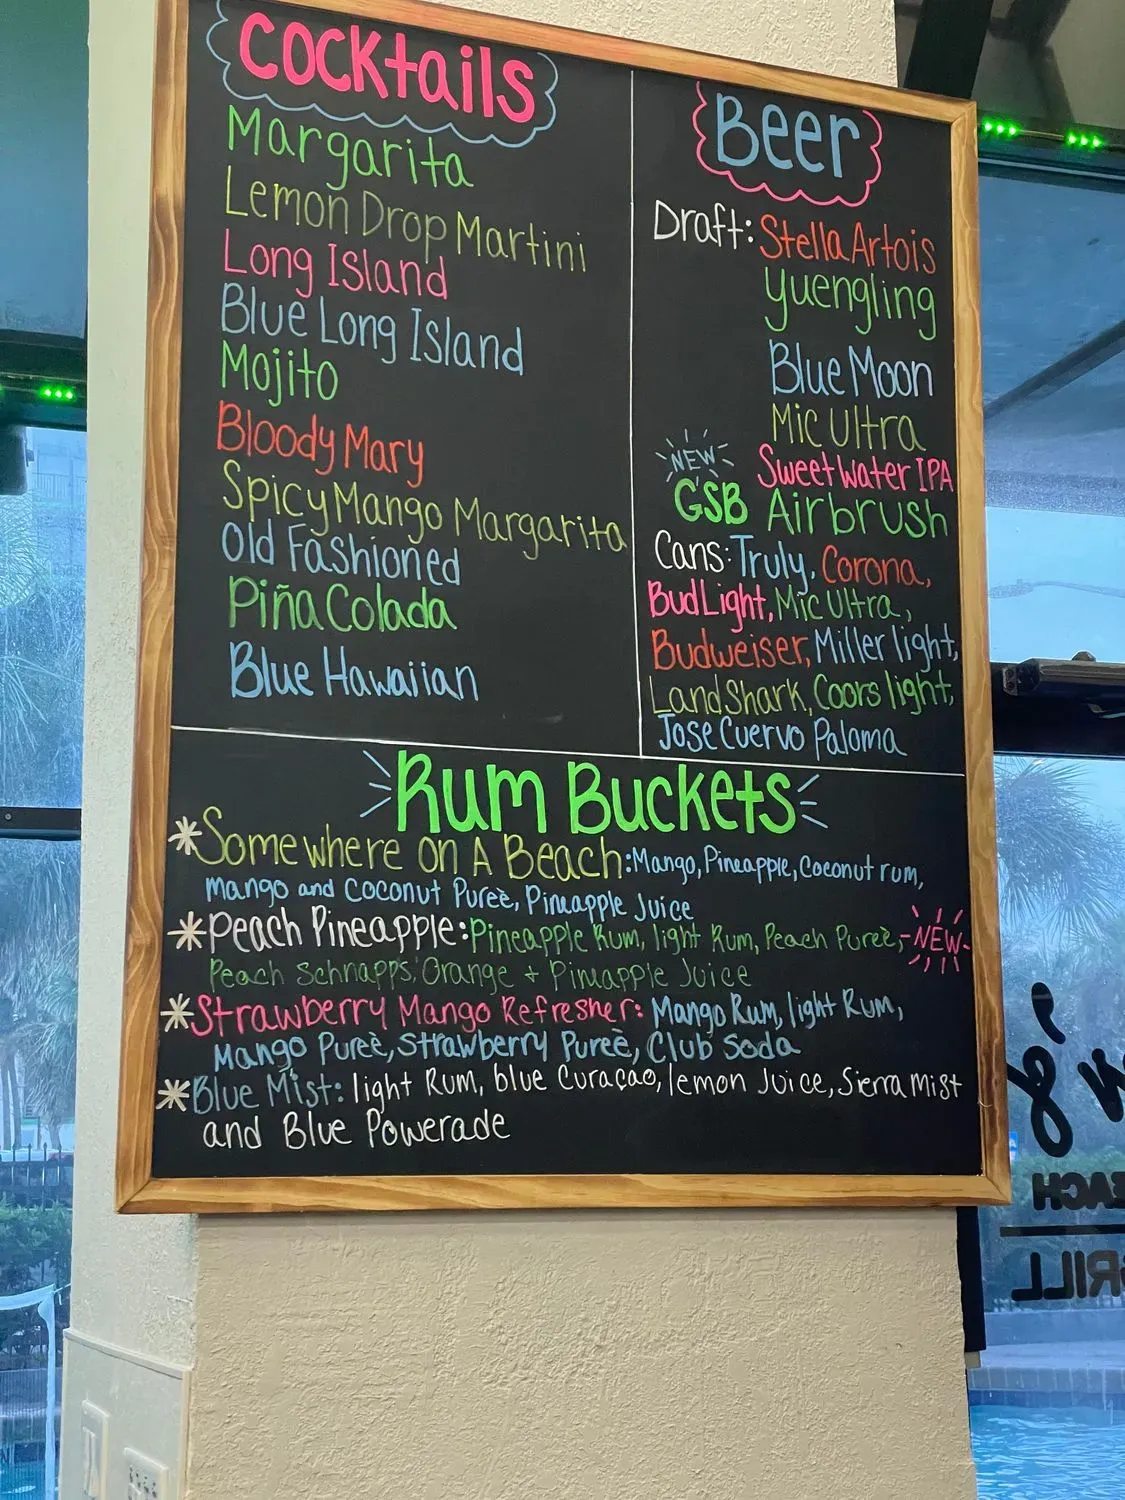 Cocktails
Margarita
Lemon Drop Martini
Long Island
Blue Long Island
Mojito
Bloody Mary
Spicy Mango Margarita
Old Fashioned
Piña Colada
Blue Hawaiian
Beer
Draft: Stella Artois
Yuengling
Blue Moon
Mic Ultra
Sweet Water IPA
NEW
GSB Airbrush
Cans: Truly, Corona,
Bud Light, Mic Ultra,
Budweiser, Miller light,
LandShark, Coors light,
Jose Cuervo Paloma
Rum Buckets
*Somewhere on A Beach: Mango, Pineapple, Coconut rum,
mango and Coconut Pureè, Pineapple Juice
*Peach Pineapple: Pineapple Rum, light Rum, Peach Pureè, -NEW-
Peach Schnapps, Orange + Pineapple Juice
*Strawberry Mango Refresher: Mango Rum, light Rum,
Mango Pureè, Strawberry Pureè, Club Soda
*Blue Mist: light Rum, blue Curaçao, lemon Juice, Sierra Mist
and Blue Powerade